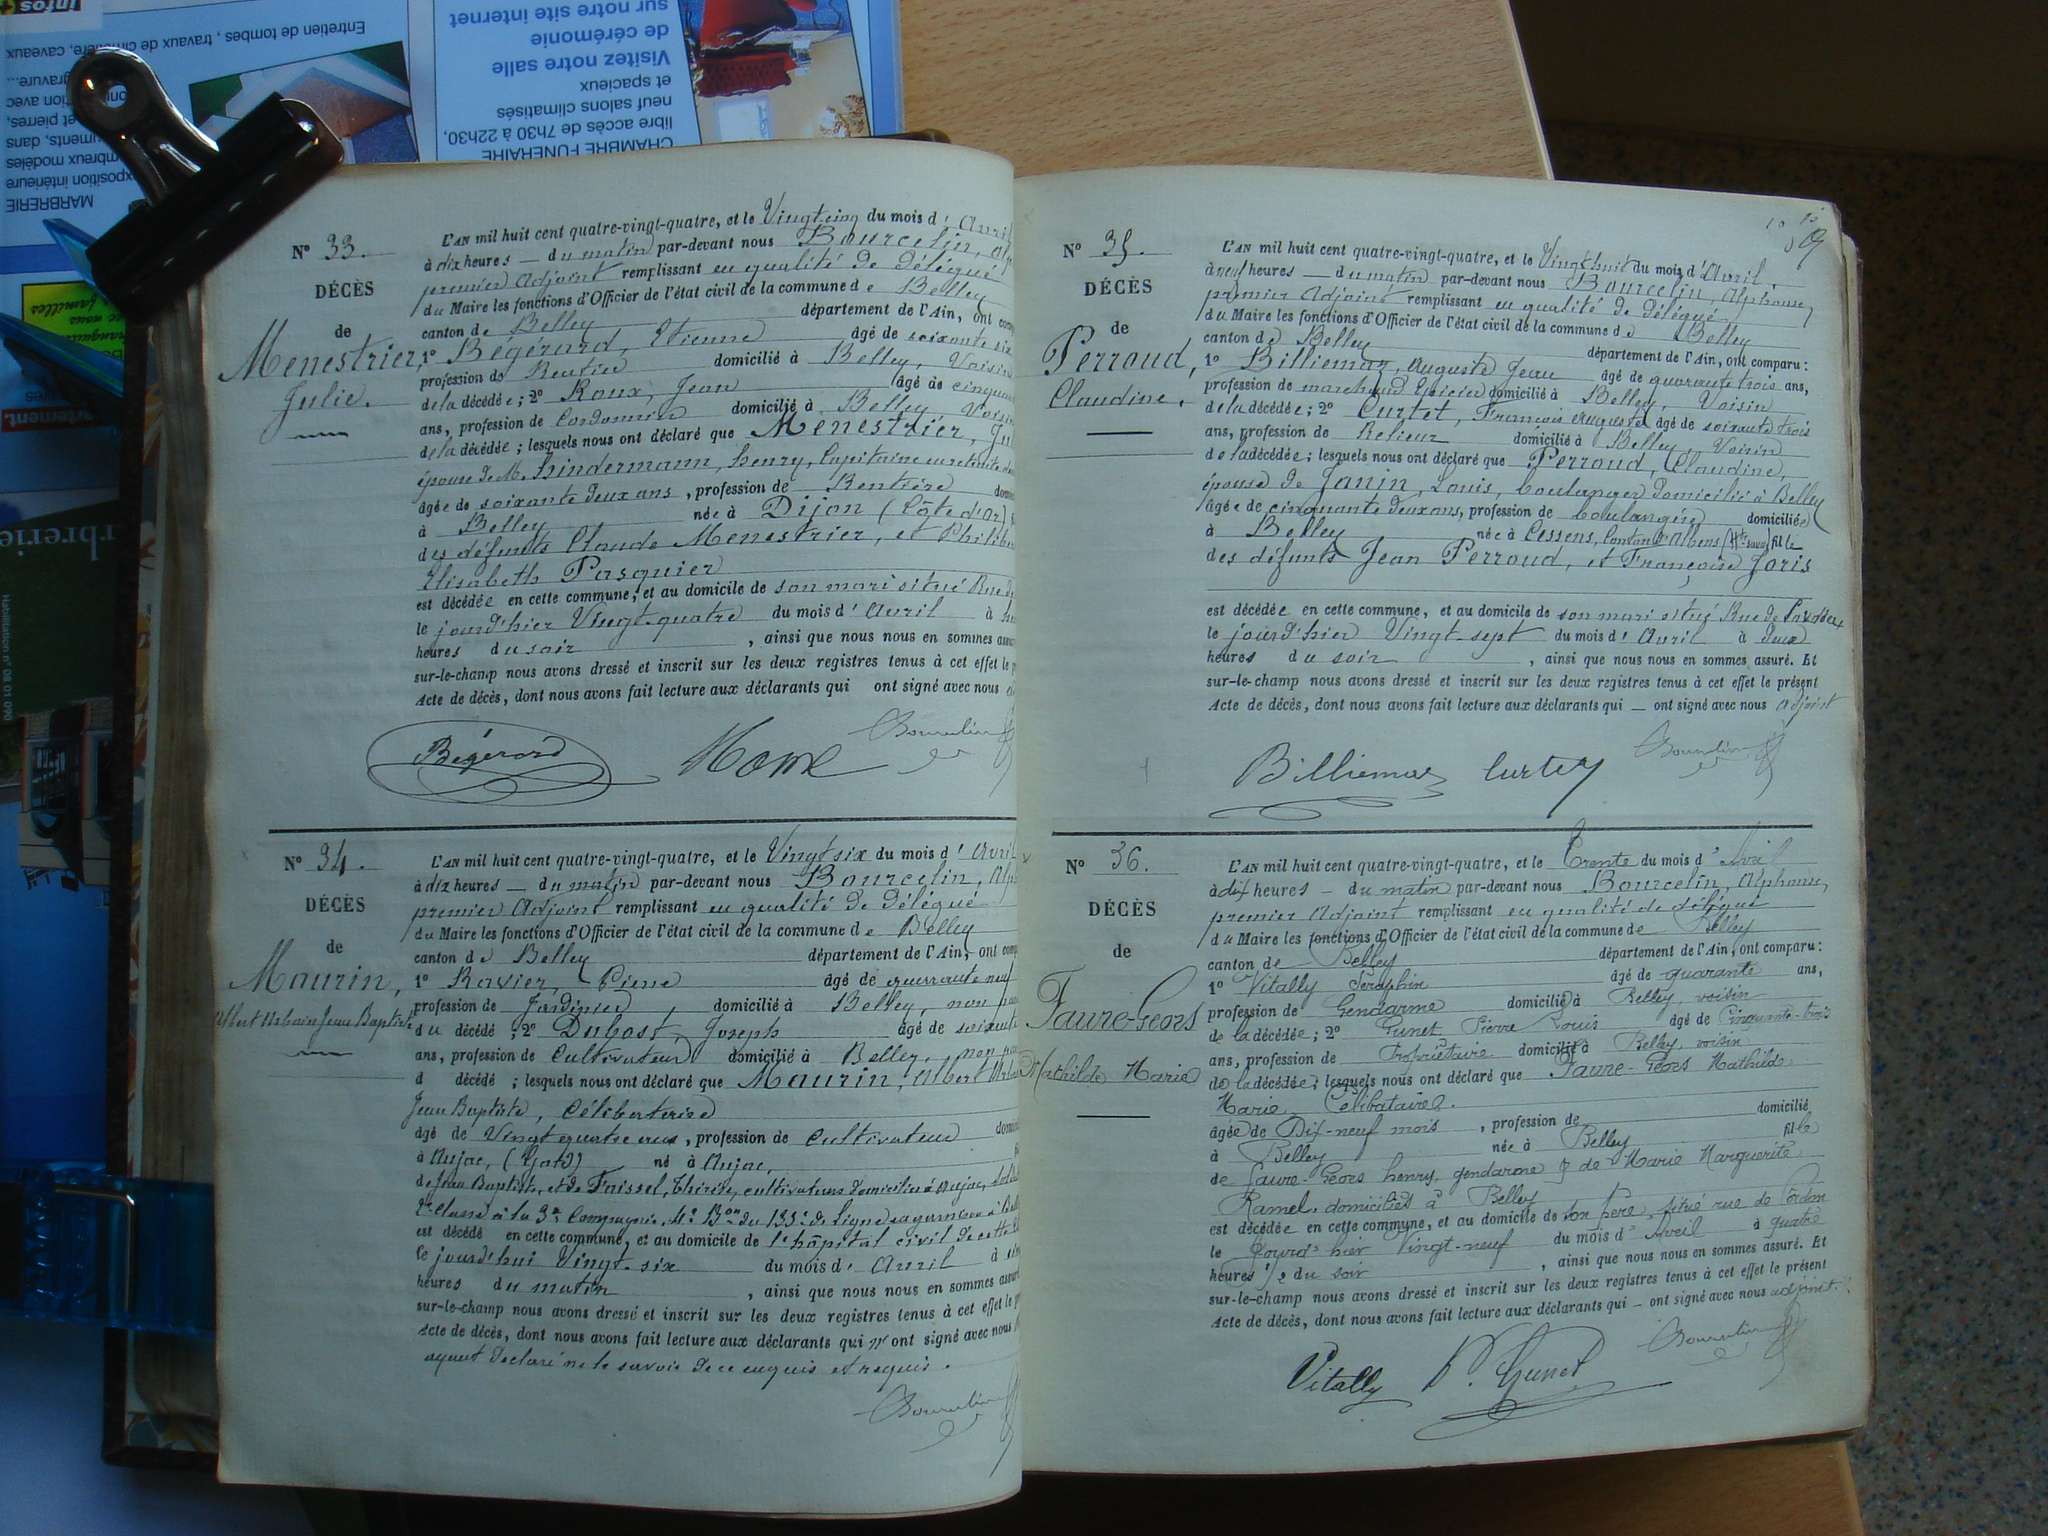 N° 33.
DÉCÈS
de
Menestrier,
Julie.
L'AN mil huit cent quatre-vingt-quatre, et le Vingt-cinq du mois d'Avril
à dix heures — du matin par-devant nous Bourcelin,
premier Adjoint remplissant en qualité de délégué
du Maire les fonctions d'Officier de l'état civil de la commune de Belley
canton de Belley département de l'Ain, ont
1° Bégérard, Etienne âgé de soixante six
profession de Rentier domicilié à Belley, Voisin
de la décédée; 2° Roux, Jean âgé de
ans, profession de Cordonnier domicilié à Belley, Voisin
de la décédée; lesquels nous ont déclaré que Menestrier,
épouse de M. Hindermann, henry, Capitaine en retraite
âgée de soixante deux ans, profession de Rentière
à Belley née à Dijon (Côte d'Or)
des défunts Claude Menestrier, et
Elisabeth Pasquier
est décédée en cette commune, et au domicile de son mari situé Rue
le jourd'hier Vingt-quatre du mois d'Avril à
heures du soir, ainsi que nous nous en sommes
sur-le-champ nous avons dressé et inscrit sur les deux registres tenus à cet effet le
Acte de décès, dont nous avons fait lecture aux déclarants qui ont signé avec nous
Bégérard Bourcelin
N° 34.
DÉCÈS
de
Maurin,
Albert Urbain Jean Baptiste
L'AN mil huit cent quatre-vingt-quatre, et le Vingt six du mois d'Avril
à dix heures — du matin par-devant nous Bourcelin,
premier Adjoint remplissant en qualité de délégué
du Maire les fonctions d'Officier de l'état civil de la commune de Belley
canton de Belley département de l'Ain, ont
1° Ravier, Pierre âgé de quarante neuf
profession de Jardinier domicilié à Belley, non
du décédé; 2° Dubost, Joseph âgé de soixante
ans, profession de Cultivateur domicilié à Belley, non
d décédé; lesquels nous ont déclaré que Maurin, Albert
Jean Baptiste, Célibataire
âgé de Vingt quatre ans, profession de Cultivateur
à Aujac, (Gard) né à Aujac,
de Jean Baptiste, et de Faissel, Thérèse, cultivateurs domiciliés à Aujac,
2e Classe à la 3e Compagnie, 4e Bon du 133e de Ligne en garnison à
est décédé en cette commune, et au domicile de l'hôpital civil de cette
le jourd'hui Vingt-six du mois d'Avril à
heures du matin, ainsi que nous nous en sommes assuré
sur-le-champ nous avons dressé et inscrit sur les deux registres tenus à cet effet le
Acte de décès, dont nous avons fait lecture aux déclarants qui n'ont signé avec nous
ayant déclaré ne le savoir de ce enquis et requis.
Bourcelin
N° 35.
DÉCÈS
de
Perroud,
Claudine.
L'AN mil huit cent quatre-vingt-quatre, et le Vingt huit du mois d'Avril
à neuf heures — du matin par-devant nous Bourcelin, Alphonse,
premier Adjoint remplissant en qualité de délégué
du Maire les fonctions d'Officier de l'état civil de la commune de Belley
canton de Belley département de l'Ain, ont comparu:
1° Billiemaz, Auguste Jean âgé de quarante trois ans,
profession de marchand Epicier domicilié à Belley, Voisin
de la décédée; 2° Curtet, François Auguste âgé de soixante trois
ans, profession de Relieur domicilié à Belley, Voisin
de la décédée; lesquels nous ont déclaré que Perroud, Claudine,
épouse de Janin, Louis, boulanger domicilié à Belley
âgée de cinquante deux ans, profession de boulangère domiciliée
à Belley née à Cessens, Canton d'Albens (Hte Savoie) fille
des défunts Jean Perroud, et Françoise Joris
est décédée en cette commune, et au domicile de son mari situé Rue de
le jourd'hier Vingt-sept du mois d'Avril à deux
heures du soir, ainsi que nous nous en sommes assuré. Et
sur-le-champ nous avons dressé et inscrit sur les deux registres tenus à cet effet le présent
Acte de décès, dont nous avons fait lecture aux déclarants qui — ont signé avec nous adjoint
Billiemaz Curtet Bourcelin
N° 36.
DÉCÈS
de
Faure-Geors
Mathilde Marie
L'AN mil huit cent quatre-vingt-quatre, et le Trente du mois d'Avril
à dix heures — du matin par-devant nous Bourcelin, Alphonse,
premier Adjoint remplissant en qualité de délégué
du Maire les fonctions d'Officier de l'état civil de la commune de Belley
canton de Belley département de l'Ain, ont comparu:
1° Vitally Séraphin âgé de quarante ans,
profession de Gendarme domicilié à Belley, voisin
de la décédée; 2° Pierre Louis âgé de Cinquante-trois
ans, profession de Propriétaire domicilié à Belley, voisin
de la décédée; lesquels nous ont déclaré que Faure-Geors Mathilde
Marie, Célibataire.
âgée de Dix-neuf mois, profession de domicilié
à Belley née à Belley fille
de Faure-Geors henry, gendarme & de Marie Marguerite
Ramel, domiciliés à Belley
est décédée en cette commune, et au domicile de son père, situé rue de
le Jourd'hier Vingt-neuf du mois d'Avril à quatre
heures 1/2 du soir, ainsi que nous nous en sommes assuré. Et
sur-le-champ nous avons dressé et inscrit sur les deux registres tenus à cet effet le présent
Acte de décès, dont nous avons fait lecture aux déclarants qui — ont signé avec nous adjoint.
Vitally Bourcelin
MARBRERIE
CHAMBRE FUNERAIRE
libre accès de 7h30 à 22h30,
neuf salons climatisés
et spacieux
Visitez notre salle
de cérémonie
sur notre site internet
Entretien de tombes, travaux de cimetière, caveaux
infos+
Habilitation n° 08 01 090